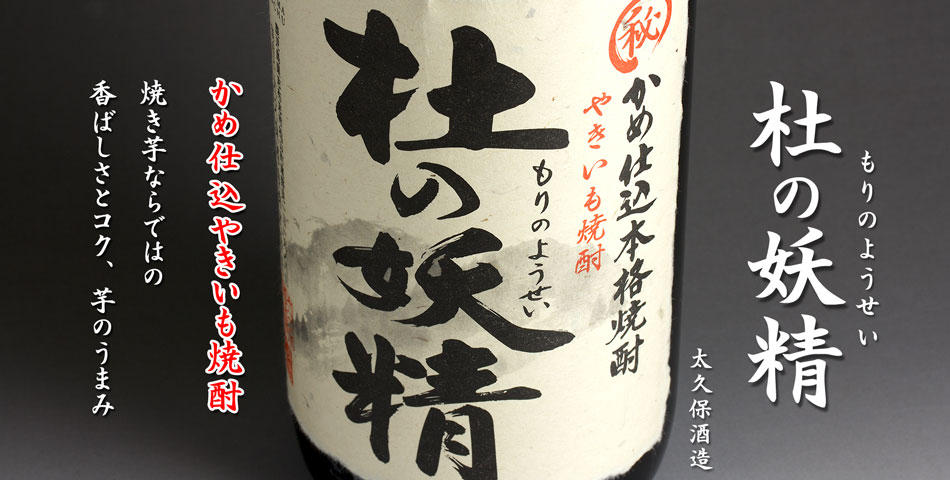 杜の妖精
もりのようせい
太久保酒造
㊙
かめ仕込本格焼酎
やきいも焼酎
杜の妖精
もりのようせい
かめ仕込やきいも焼酎
焼き芋ならではの
香ばしさとコク、芋のうまみ